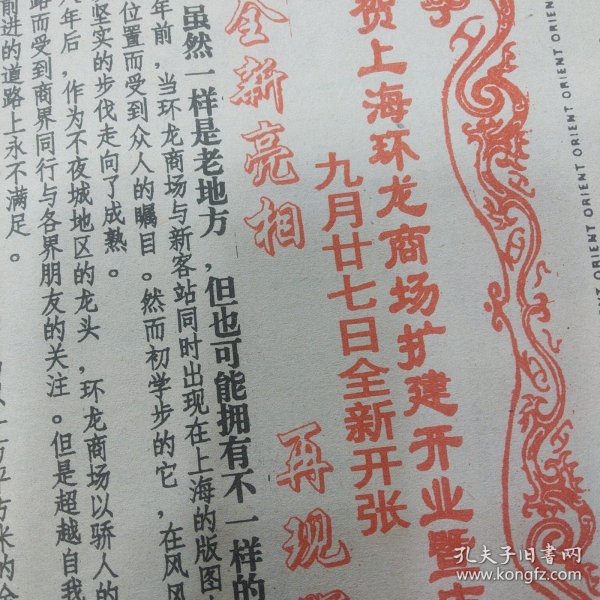 贺上海环龙商场扩建开业暨
九月廿七日全新开张
全新亮相
再现
虽然一样是老地方，但也可能拥有不一样的
年前，当环龙商场与新客站同时出现在上海的版图
位置而受到众人的瞩目。然而初学步的它，在风风
坚实的步伐走向了成熟。
八年后，作为不夜城地区的龙头，环龙商场以骄人的
路而受到商界同行与各界朋友的关注。但是超越自我
前进的道路上永不满足。
ORIENT ORIENT ORIENT ORIENT ORIENT
孔夫子旧书网
www.kongfz.com